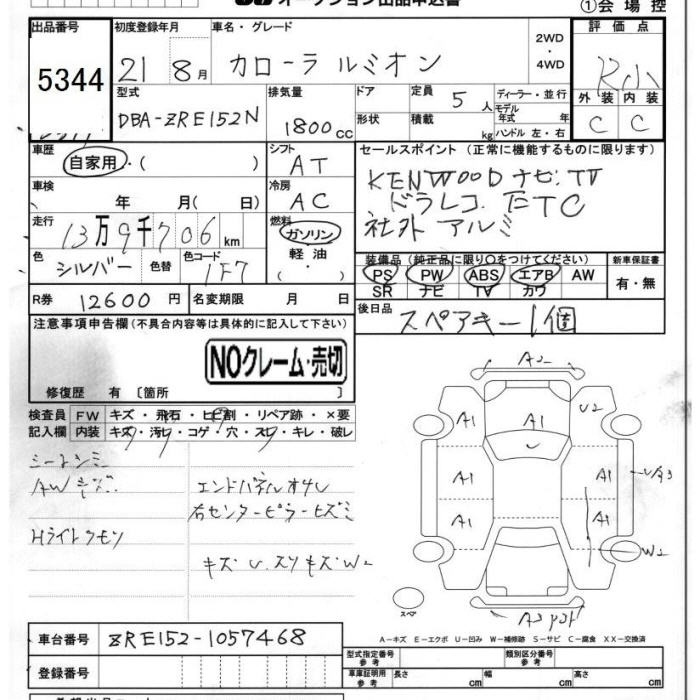 オークション出品申込書
①会場控
出品番号 初度登録年月 車名・グレード 2WD・4WD 評価点
5344 21 8月 カローラルミオン R小
型式 排気量 ドア 定員 5人 ディーラー・並行 外装 内装
DBA-ZRE152N 1800cc 形状 積載 kg モデル年式 年 ハンドル 左・右 C C
車歴 自家用・( ) シフト AT セールスポイント (正常に機能するものに限ります)
車検 年 月( 日) 冷房 AC KENWOODナビ.TV
ドラレコ.ETC
走行 13万9千706km 燃料 ガソリン 軽油・( ) 社外アルミ
色 シルバー 色替 色コード 1F7 装備品 (純正品に限り○をつけてください) 新車保証書
PS PW ABS エアB AW 有・無
SR ナビ TV カワ
R券 12600円 名変期限 月 日 後日品 スペアキー1個
注意事項申告欄(不具合内容等は具体的に記入して下さい)
NOクレーム・売切
修復歴 有 〔箇所 〕
検査員 FW キズ・飛石・ヒビ割・リペア跡・×要
記入欄 内装 キズ・汚レ・コゲ・穴・スレ・キレ・破レ
AWキズ エンドパネルオサレ
右センターピラーヒズミ
Hライトクモリ
キズU.スリキズW2
A2
A1 A1 U2
A1 A1 UA3
A1 A1
W2
スペア
A-キズ E-エクボ U-凹み W-補修跡 S-サビ C-腐食 XX-交換済
車台番号 ZRE152-1057468
登録番号
型式指定番号 参考 類別区分番号 参考
車庫証明用 参考 長さ cm 幅 cm 高さ cm